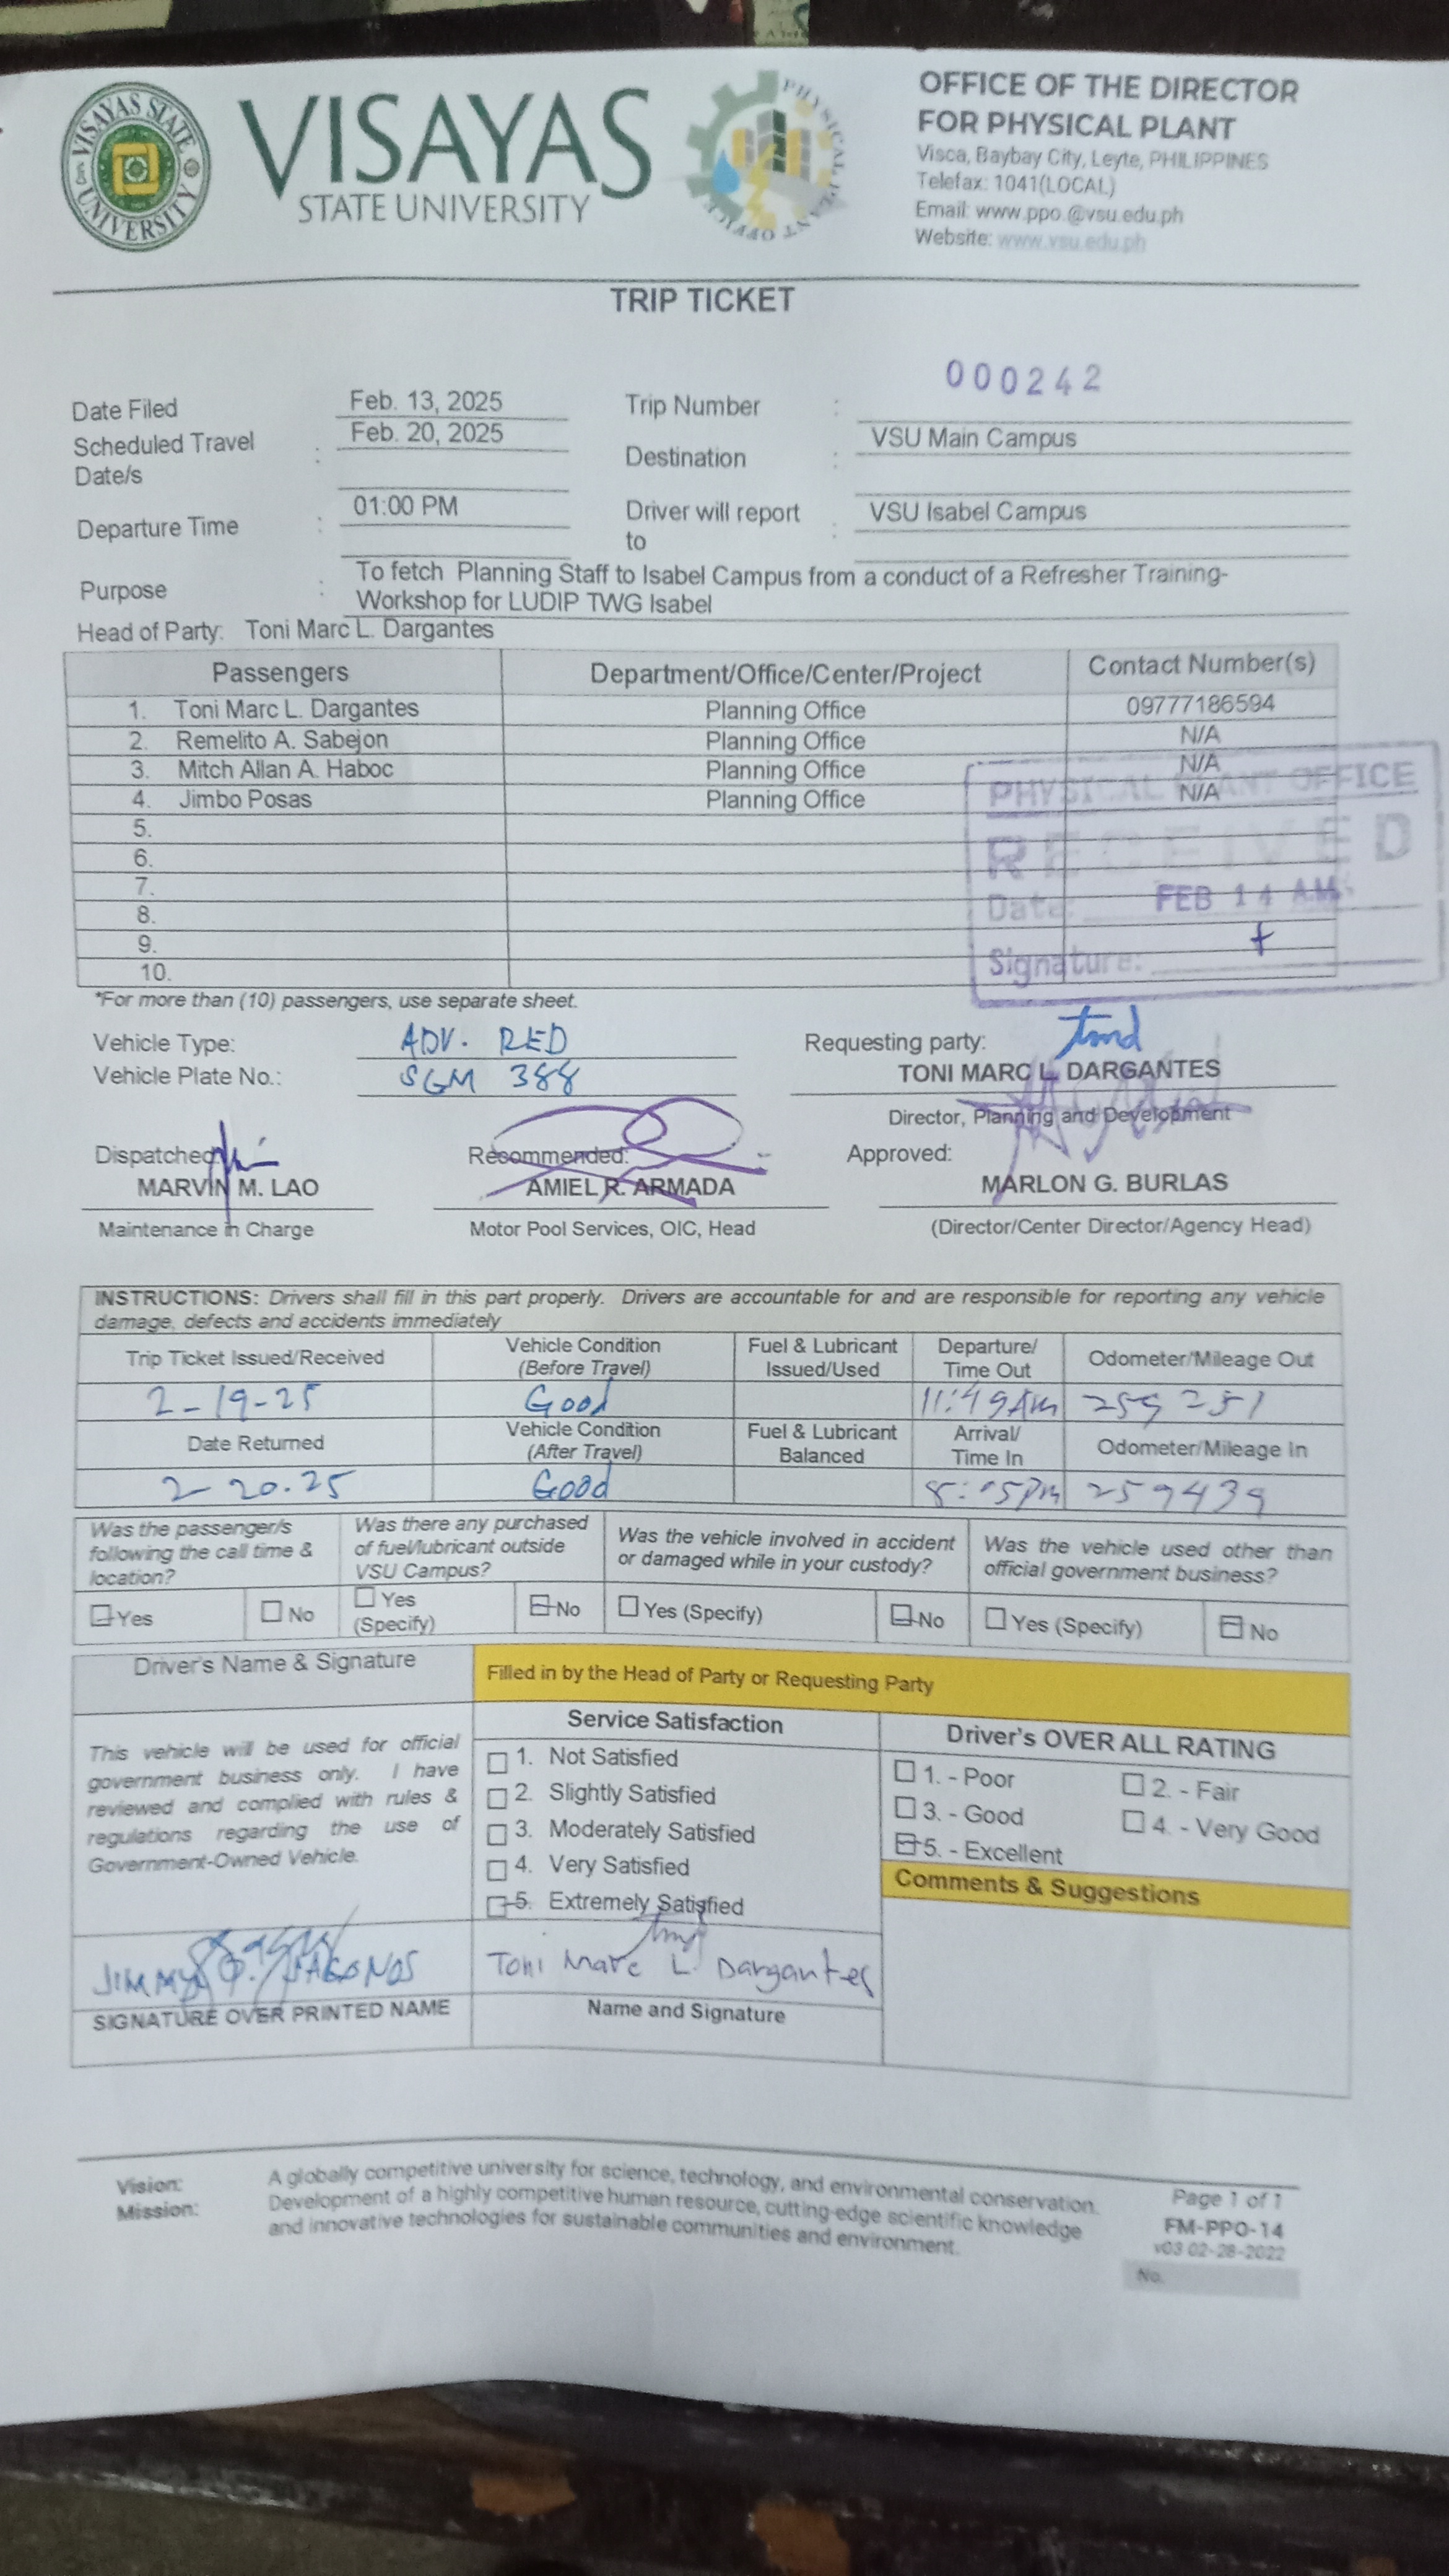 VISAYAS STATE UNIVERSITY
VISAYAS
STATE UNIVERSITY
PHYSICAL PLANT OFFICE
OFFICE OF THE DIRECTOR
FOR PHYSICAL PLANT
Visca, Baybay City, Leyte, PHILIPPINES
Telefax: 1041(LOCAL)
Email: www.ppo.@vsu.edu.ph
Website: www.vsu.edu.ph
TRIP TICKET
000242
Date Filed Feb. 13, 2025 Trip Number :
Scheduled Travel Date/s : Feb. 20, 2025 Destination : VSU Main Campus
Departure Time : 01:00 PM Driver will report to : VSU Isabel Campus
Purpose : To fetch Planning Staff to Isabel Campus from a conduct of a Refresher Training-
Workshop for LUDIP TWG Isabel
Head of Party: Toni Marc L. Dargantes
Passengers Department/Office/Center/Project Contact Number(s)
1. Toni Marc L. Dargantes Planning Office 09777186594
2. Remelito A. Sabejon Planning Office N/A
3. Mitch Allan A. Haboc Planning Office N/A
4. Jimbo Posas Planning Office N/A
5.
6.
7.
8.
9.
10.
PHYSICAL PLANT OFFICE
RECEIVED
Date: FEB 14 A.M.
Signature:
*For more than (10) passengers, use separate sheet.
Vehicle Type: ADV. RED Requesting party: tmd
Vehicle Plate No.: SGM 388 TONI MARC L. DARGANTES
Director, Planning and Development
Dispatched Recommended: Approved:
MARVIN M. LAO AMIEL R. ARMADA MARLON G. BURLAS
Maintenance in Charge Motor Pool Services, OIC, Head (Director/Center Director/Agency Head)
INSTRUCTIONS: Drivers shall fill in this part properly. Drivers are accountable for and are responsible for reporting any vehicle
damage, defects and accidents immediately
Trip Ticket Issued/Received Vehicle Condition (Before Travel) Fuel & Lubricant Issued/Used Departure/ Time Out Odometer/Mileage Out
2-19-25 Good 11:49AM 259251
Date Returned Vehicle Condition (After Travel) Fuel & Lubricant Balanced Arrival/ Time In Odometer/Mileage In
2-20.25 Good 259439
Was the passenger/s following the call time & location? Was there any purchased of fuel/lubricant outside VSU Campus? Was the vehicle involved in accident or damaged while in your custody? Was the vehicle used other than official government business?
Yes No Yes (Specify) No Yes (Specify) No Yes (Specify) No
Driver's Name & Signature Filled in by the Head of Party or Requesting Party
Service Satisfaction Driver's OVER ALL RATING
This vehicle will be used for official
government business only. I have
reviewed and complied with rules &
regulations regarding the use of
Government-Owned Vehicle.
1. Not Satisfied
2. Slightly Satisfied
3. Moderately Satisfied
4. Very Satisfied
5. Extremely Satisfied
1. - Poor 2. - Fair
3. - Good 4. - Very Good
5. - Excellent
Comments & Suggestions
JIMMY Toni Marc L. Dargantes
SIGNATURE OVER PRINTED NAME Name and Signature
Vision: A globally competitive university for science, technology, and environmental conservation.
Mission: Development of a highly competitive human resource, cutting-edge scientific knowledge
and innovative technologies for sustainable communities and environment.
Page 1 of 1
FM-PPO-14
v03 02-28-2022
No.